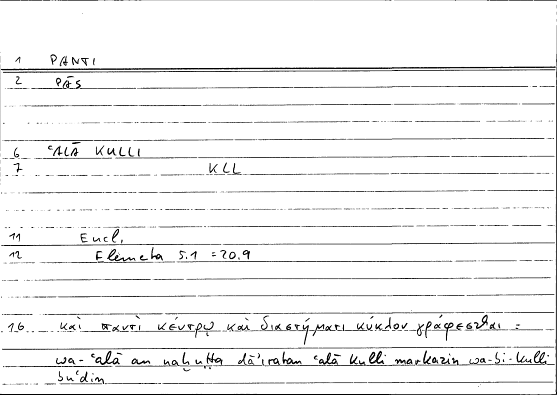 1 PANTI
2 PĀS
6 ʿALĀ KULLI
7 KLL
11 Eucl.
12 Elementa 5.1 = 20.9
16 καὶ παντὶ κέντρῳ καὶ διαστήματι κύκλον γράφεσθαι =
wa-ʿalā an naḫuṭṭa dāʾiratan ʿalā kulli markazin wa-bi-kulli
buʿdin